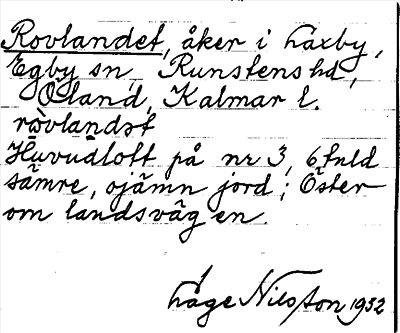 Rovlandet, åker i Laxby,
Egby sn, Runstens hd,
Öland, Kalmar l.
ròvlandət
Huvudloft på nr 3, 6 fuld
sämre, ojämn jord; Öster
om landsvägen.
Åge Nilsson 1932